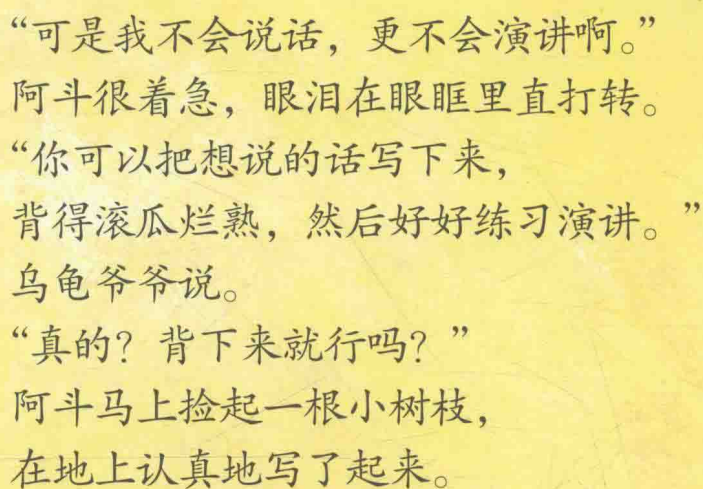 “可是我不会说话，更不会演讲啊。”
阿斗很着急，眼泪在眼眶里直打转。
“你可以把想说的话写下来，
背得滚瓜烂熟，然后好好练习演讲。”
乌龟爷爷说。
“真的？背下来就行吗？”
阿斗马上捡起一根小树枝，
在地上认真地写了起来。